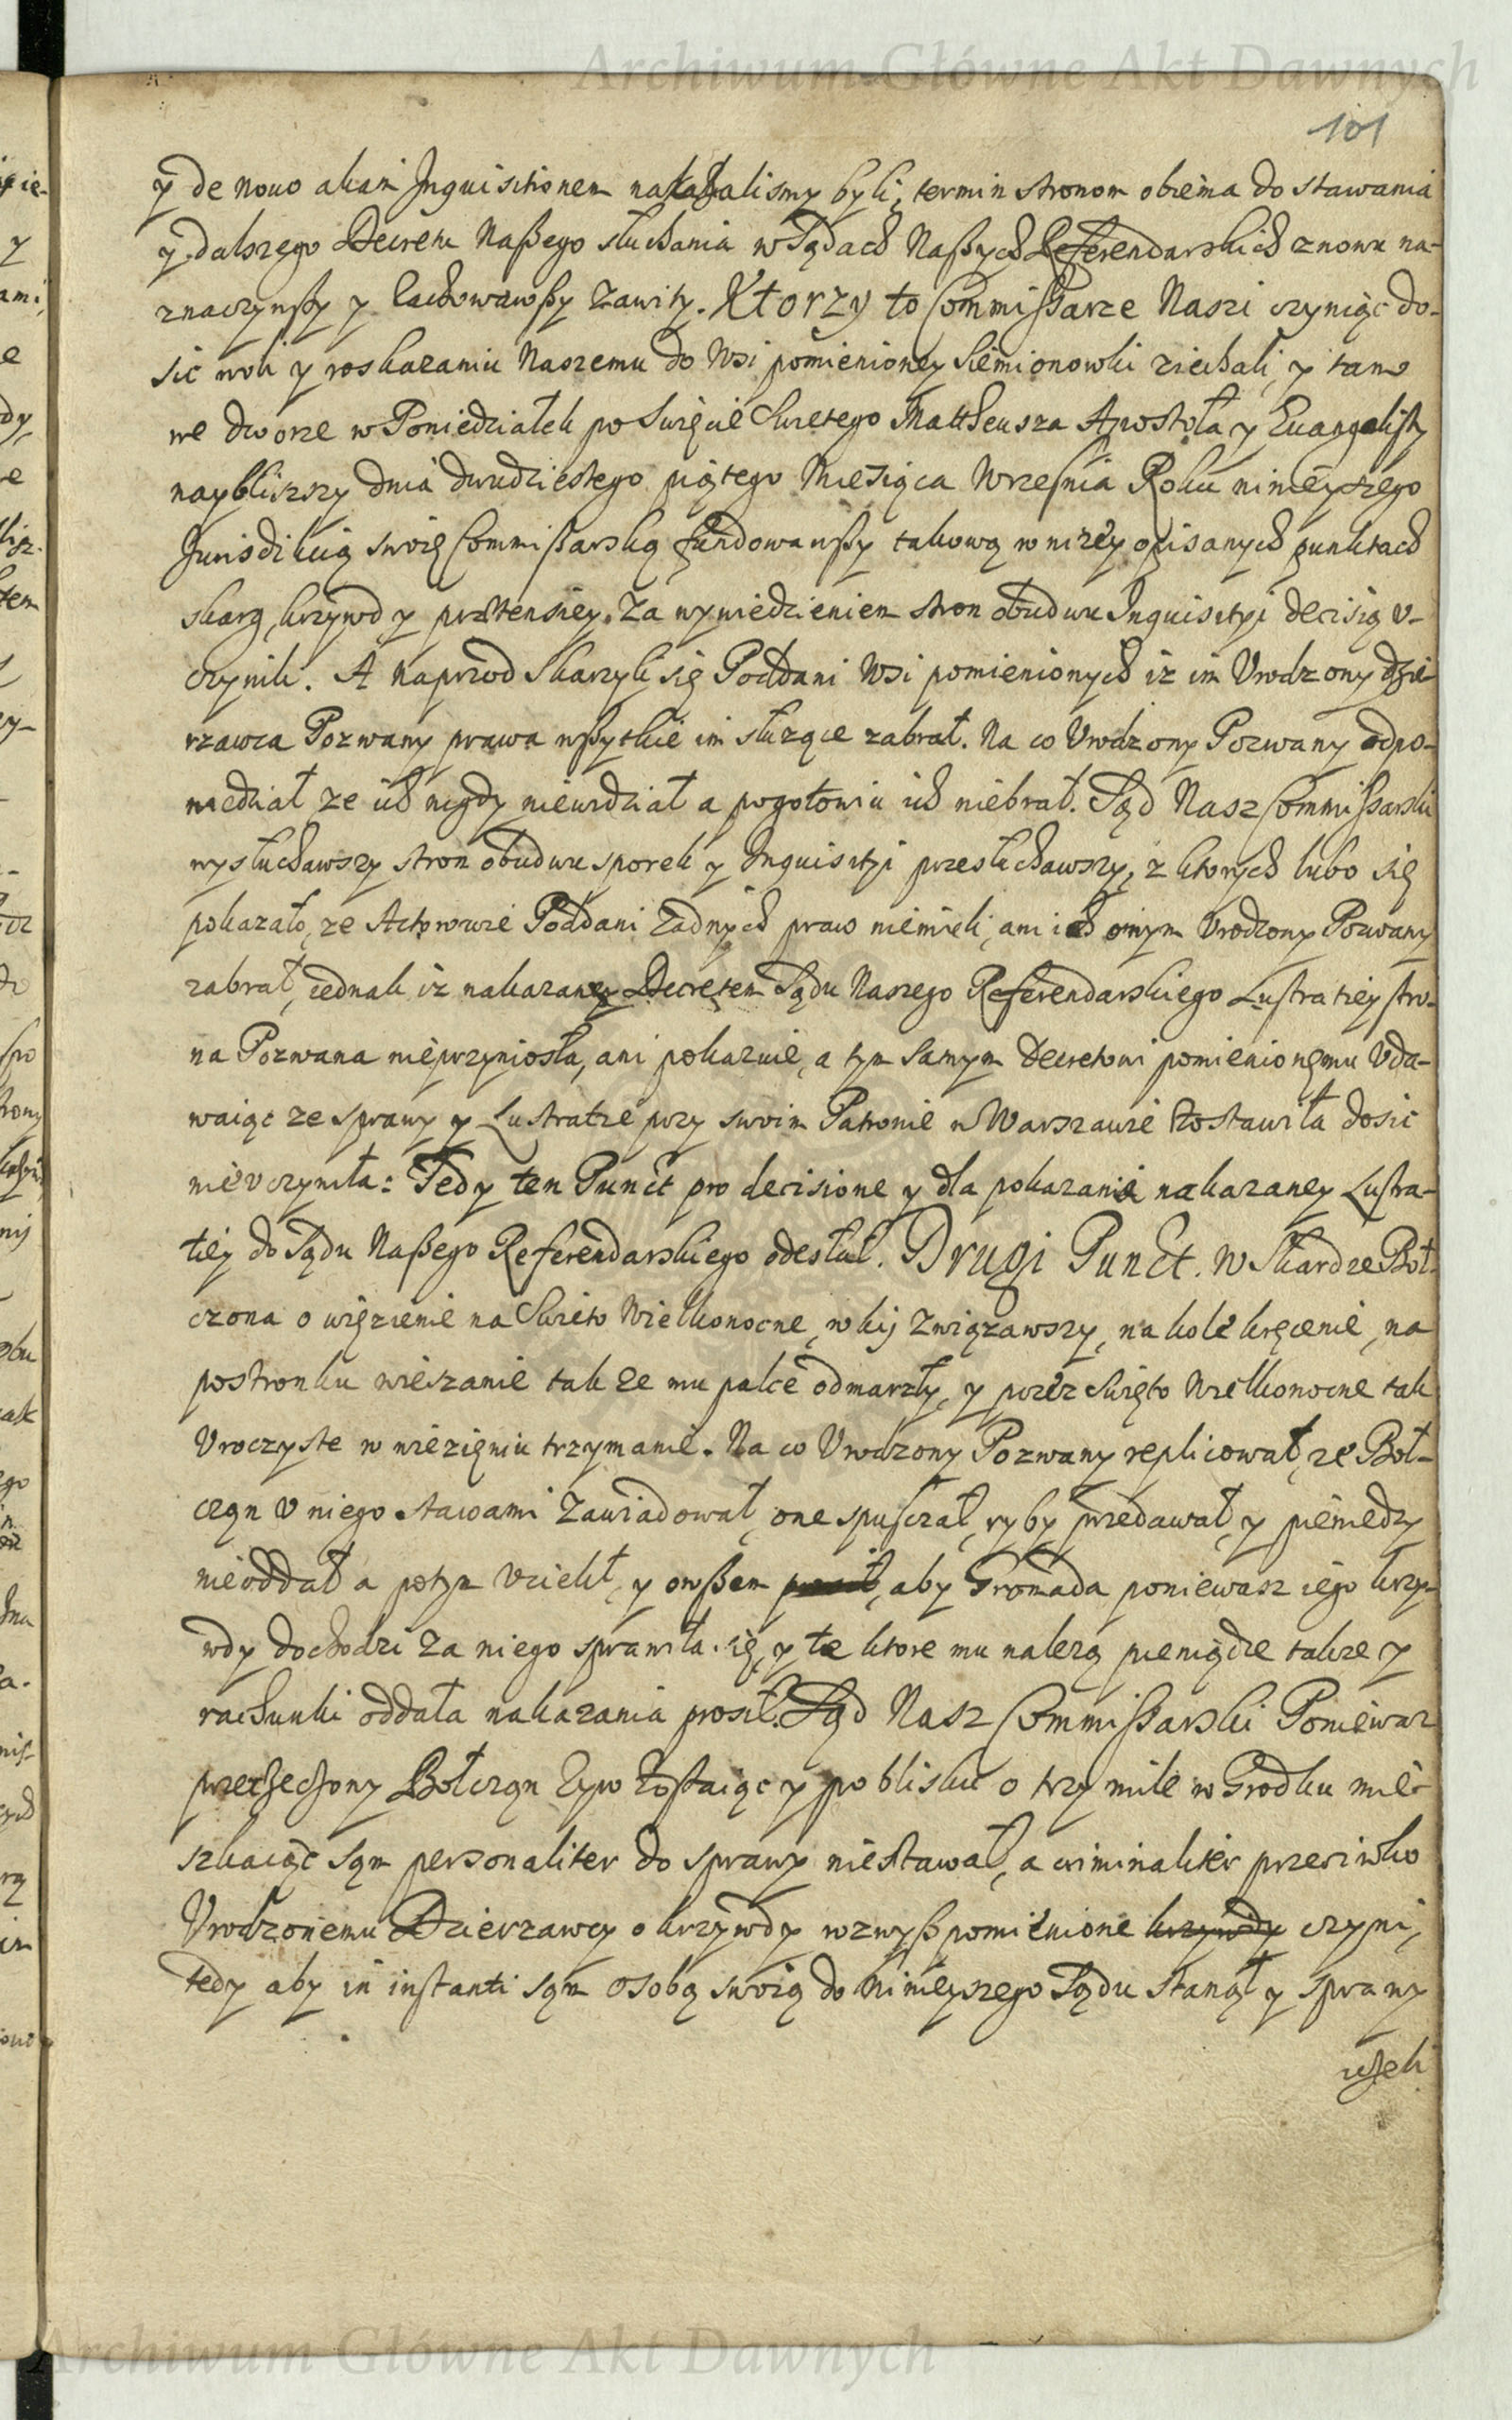 Archiwum Główne Akt Dawnych
101
y de nouo aliam Inquisitionem nakazalismy byli, termin stronom obiema do stawania
y dalszego Decretu Naßego słuchania w Sądach Naßych Referendarskich znowu na-
znaczywßy y zachowawßy zawity. Ktorzy to Commißarze Naszi czyniąc do-
sić woli y roskazaniu Naszemu do Wsi pomienioney Siemionowki ziechali, y tam
we dworze w Poniedziałek po Swięcie Swietego Mattheusza Apostoła y Euangelisty
naybliszszy dnia dwudziestego piątego Miesiąca Wrzesnia Roku ninieyszego
Jurisdikcią swoię Commißarską fundowawßy takową w nizey opisanych punktach
skarg, krzywd y prætensiey. Za wywiedzieniem stron obudwu Inquisityi decisią v-
czynili. A naprzod Skarzyli się Poddani Wsi pomienionych iz im Vrodzony dzie-
rzawca Pozwany prawa wßytkie im słuzące zabrał. Na co Vrodzony Pozwany odpo-
wiedział ze ich nigdy niewidział a pogotowiu ich niebrał. Sąd Nasz Commißarski
wysłuchawszy stron obudwu sporek y Inquisityi przesłuchawszy, z ktorych lubo się
pokazało, ze Actorowie Poddani zadnych praw niemieli, ani ich onym Vrodzony Pozwany
zabrał, iednak iz nakazaney Decretem Sądu Naszego Referendarskiego Lustratiey stro-
na Pozwana nieprzyniosła, ani pokazuie, a tym samym Decretowi pomienionemu Vda-
waiąc ze sprawy y Lustratie przy swoim Patronie w Warszawie zostawiła dosić
nievczyniła: Tedy ten Punct pro decisione y dla pokazania nakazaney Lustra-
tiey do Sądu Naßego Referendarskiego odesłał. Drugi Punct. W Skardze Boł-
czona o więzienie na Swieto Wielkonocne, w kij związawszy, na kole kręcenie, na
postronku wieszanie tak ze mu palce odmarzły, y przez Swięto Wielkonocne tak
Vroczyste w więzieniu trzymanie. Na co Vrodzony Pozwany replicował, ze Boł-
czon v niego stawami zawiadował, one spuszczał, ryby przedawał, y pieniedzy
nieoddał a potym vciekł, y owßem, aby Gromada poniewasz iego krzy-
wdy dochodzi za niego sprawiła się, y te ktore mu nalezą pieniądze takze y
rachunki oddała nakazania prosił. Sąd Nasz Commißarski Poniewasz
przerzeczony Bołczon zywo zostaiąc y po blisku o trzy mile w Grodku mie-
szkaiąc sąm personaliter do sprawy niestawał, a criminaliter przeciwko
Vrodzonemu Dzierzawcy o krzywdy wzwyß pomienione krzywdy czyni,
tedy aby in instanti sąm osobą swoią do ninieyszego Sądu stanął y sprawy
Archiwum Główne Akt Dawnych